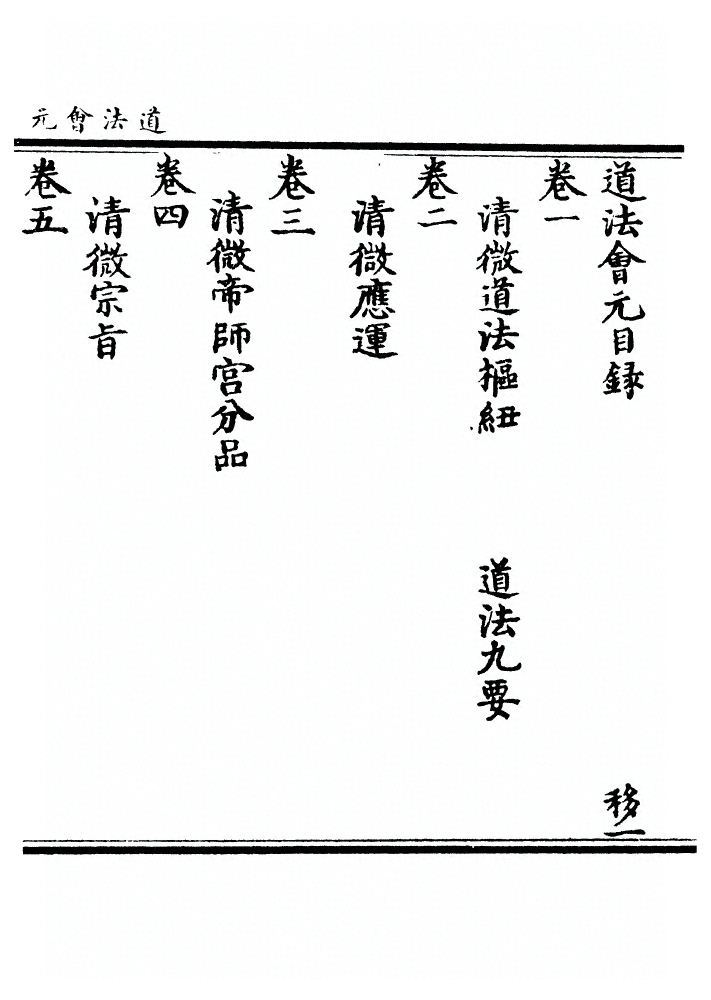 道法會元
道法會元目録 移一
卷一
清微道法摳紐 道法九要
卷二
清微應運
卷三
清微帝師宮分品
卷四
清微宗旨
卷五